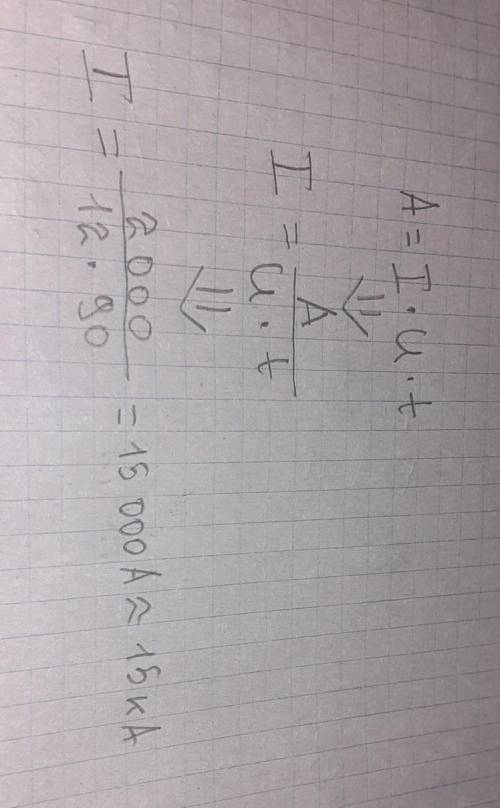 A = I · U · t
⇓
I = A / U · t
⇓
I = 2000 / 12 · 90 = 15 000 А ≈ 15 кА